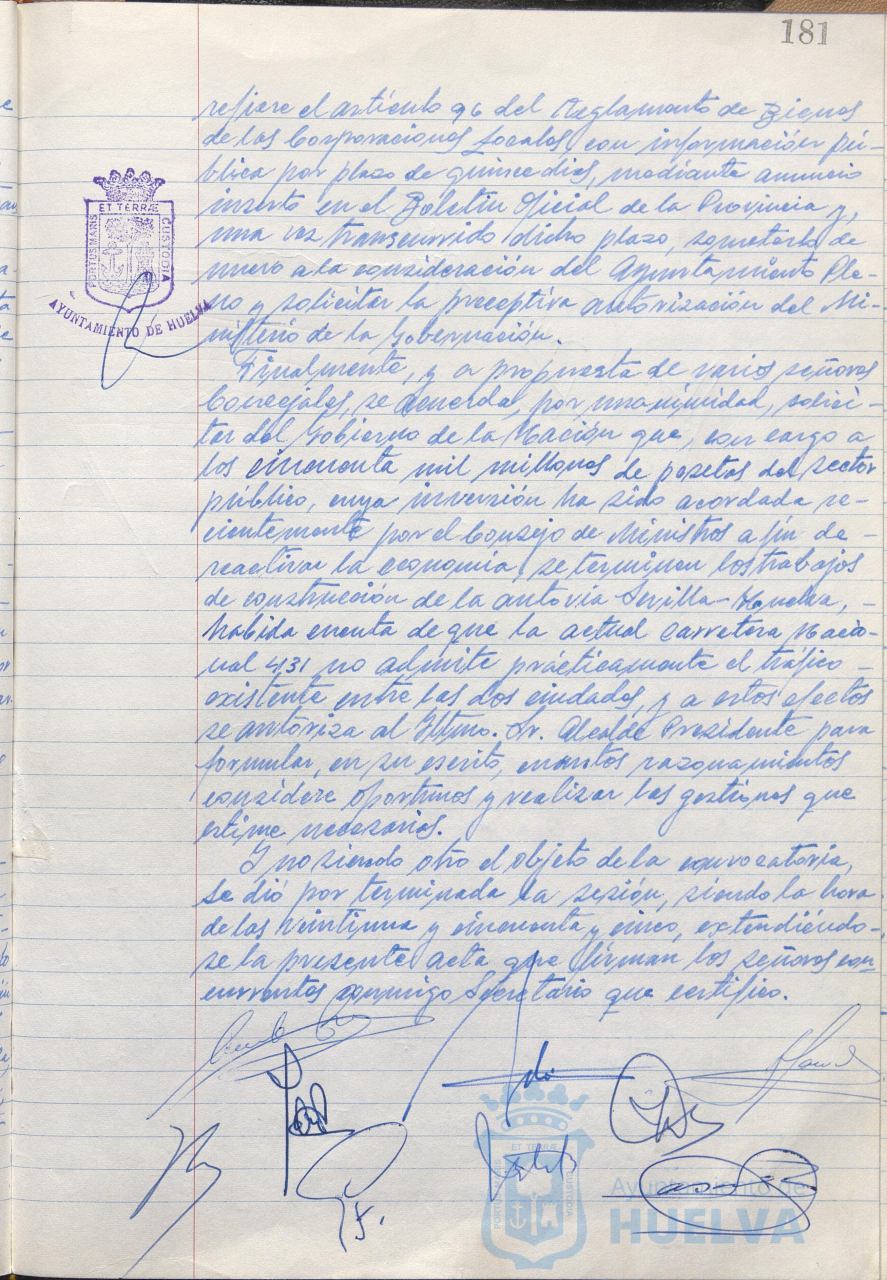 181
refiere el artículo 96 del Reglamento de Bienes
de las Corporaciones Locales, con información pú-
blica por plazo de quince días, mediante anuncio
inserto en el Boletín Oficial de la Provincia y,
una vez transcurrido dicho plazo, someterlo de
nuevo a la consideración del Ayuntamiento Ple-
no y solicitar la preceptiva autorización del Mi-
nisterio de la Gobernación.
Finalmente, y a propuesta de varios señores
Concejales, se acuerda, por unanimidad, solici-
tar del Gobierno de la Nación que, con cargo a
los cincuenta mil millones de pesetas del sector
público, cuya inversión ha sido acordada re-
cientemente por el Consejo de Ministros a fin de
reactivar la economía, se terminen los trabajos
de construcción de la autovía Sevilla-Huelva, -
habida cuenta de que la actual Carretera Nacio-
nal 431 no admite prácticamente el tráfico -
existente entre las dos ciudades, y a estos efectos
se autoriza al Iltmo. Sr. Alcalde Presidente para
formular, en su escrito, cuantos razonamientos
considere oportunos y realizar las gestiones que
estime necesarias.
Y no siendo otro el objeto de la convocatoria,
se dió por terminada la sesión, siendo la hora
de las veintiuna y cincuenta y cinco, extendiéndo-
se la presente acta que firman los señores con-
currentes conmigo Secretario que certifico.
ET TERRÆ
PORTUS MARIS
CUSTODIA
AYUNTAMIENTO DE HUELVA
ET TERRÆ
PORTUS MARIS
CUSTODIA
Ayuntamiento de
HUELVA